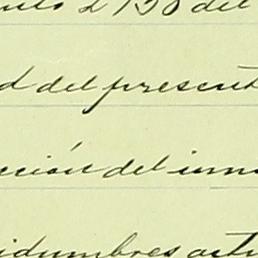 2130 del
d del present
cción del inm
idumbres actu